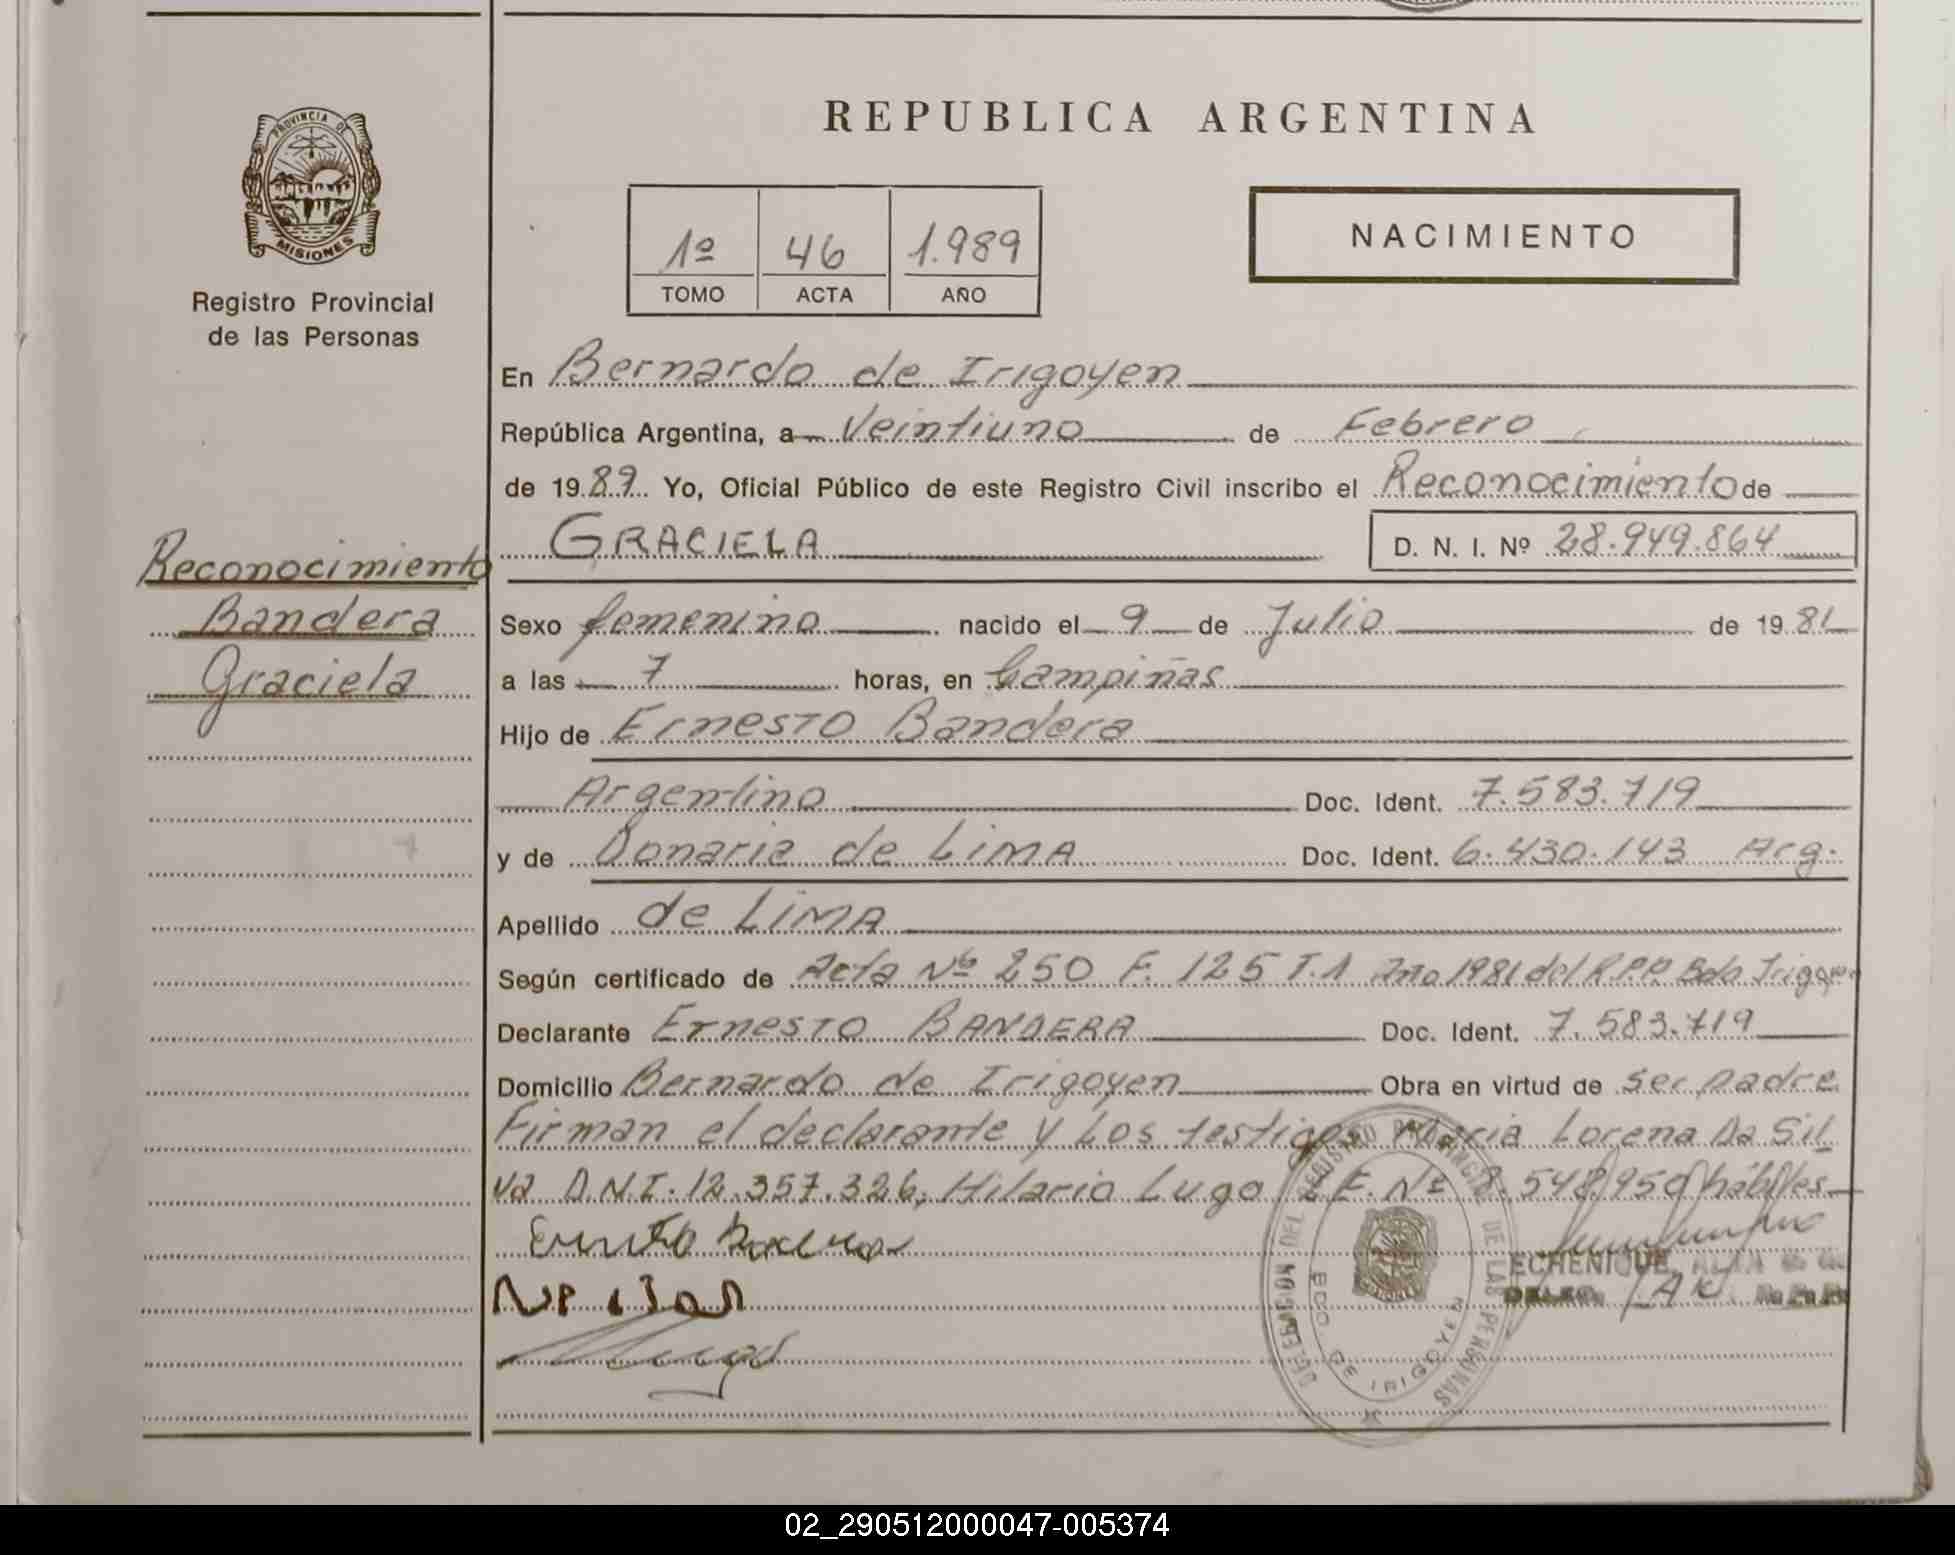 REPUBLICA ARGENTINA
PROVINCIA DE
MISIONES
Registro Provincial
de las Personas
1º 46 1.989
TOMO ACTA AÑO
NACIMIENTO
En Bernardo de Irigoyen
República Argentina, a Veintiuno de Febrero
de 1989. Yo, Oficial Público de este Registro Civil inscribo el Reconocimiento de
GRACIELA D. N. I. Nº 28.949.864
Reconocimiento
Bandera
Graciela
Sexo femenino nacido el 9 de Julio de 1981
a las 7 horas, en Campiñas
Hijo de Ernesto Bandera
Argentino Doc. Ident. 7.583.719
y de Donaria de LIMA Doc. Ident. 6.430.143 Arg.
Apellido de LIMA
Según certificado de Acta Nº 250 F. 125 T.1 Año 1981 del R.P.P. Bdo Irigoyen
Declarante Ernesto BANDERA Doc. Ident. 7.583.719
Domicilio Bernardo de Irigoyen Obra en virtud de ser padre
Firman el declarante y Los testigos Maria Lorena Da Sil
va D.N.I. 12.357.326, Hilario Lugo L.E. Nº 8.548.950 hábiles
DELEGACION DEL REGISTRO PROVINCIAL DE LAS PERSONAS
BDO. DE IRIGOYEN
ECHENIQUE,
02_290512000047-005374